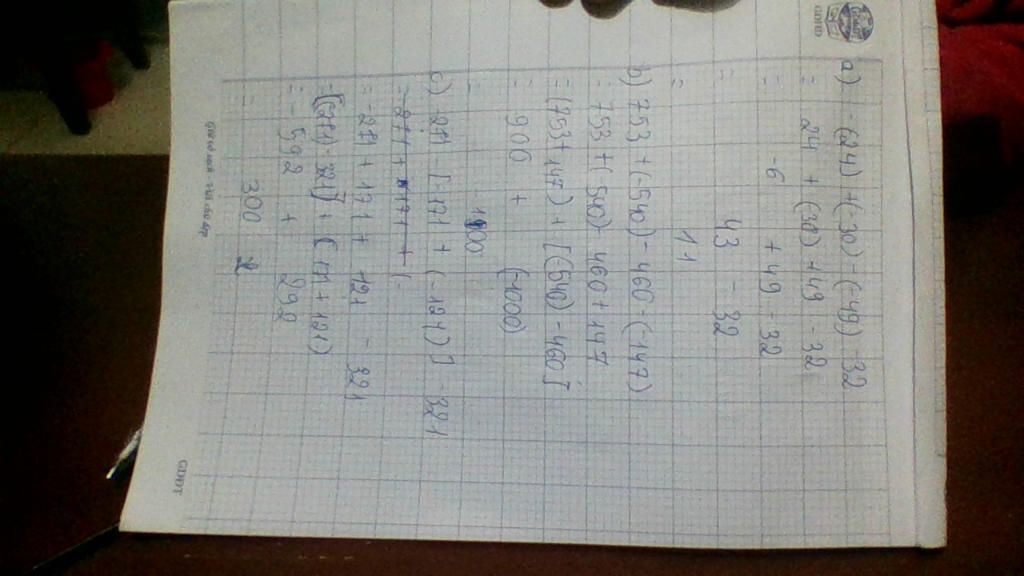 GDHD
a) -(24) + (-30) - (-49) - 32
= 24 + (30) + 49 - 32
= -6 + 49 - 32
= 43 - 32
= 11
b) 753 + (-540) - 460 - (-147)
= 753 + (-540) - 460 + 147
= [753 + 147) + [(540) - 460]
= 900 + (-1000)
= 100
c) -271 - [-171 + (-121)] - 321
= -271 + 171 + (-
= -271 + 171 + 121 - 321
= [(271) - 321] + (171 + 121)
= -592 + 292
= 300
GDĐT